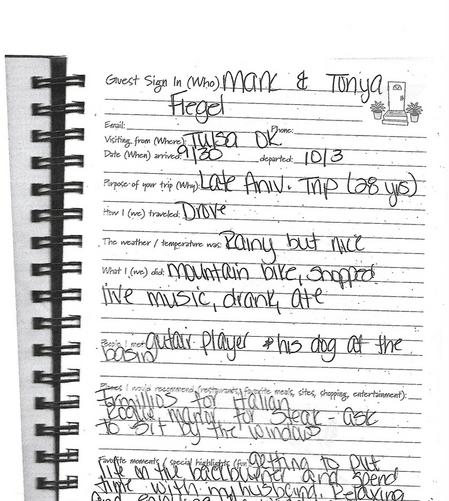 Guest Sign In (Who): Mark & Tonya
Fiegel
Email: Phone:
Visiting from (Where): Tulsa OK
Date (When) arrived: 9/30 departed: 10/3
Purpose of your trip (Why): Late Aniv. Trip (28 yrs)
How I (we) traveled: Drove
The weather / temperature was: Rainy but nice
What I (we) did: mountain bike, shopped
live music, drank, ate
People I met: gutair player & his dog at the
basin
Places I would recommend (restaurants, favorite meals, sites, shopping, entertainment):
for Italian
Rogue Manor for Steak - ask
to sit by the windows
Favorite moments / special highlights (fun): getting to put
life on the backburner and spend
time with my husband relaxing
and